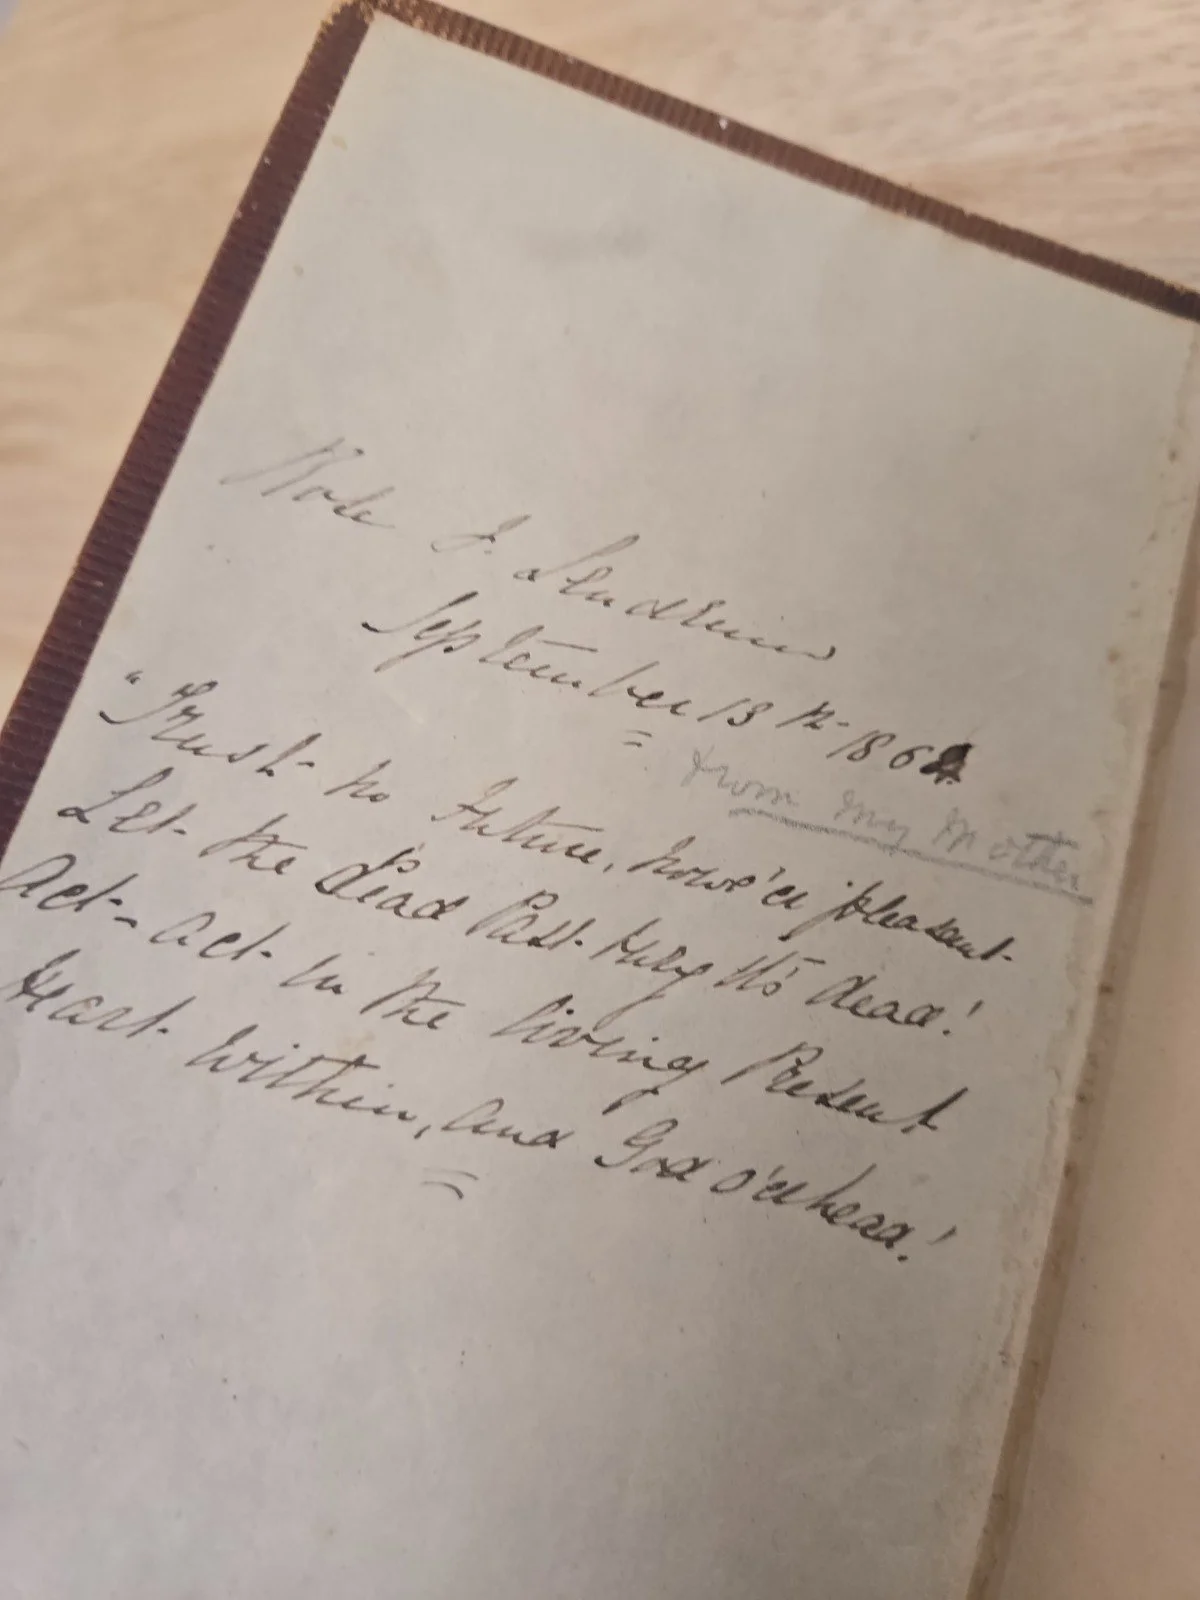 J.
September 13th 1864
from my Mother
"Trust no Future, howe'er pleasant
Let the dead Past bury its dead!
Act - act in the living Present
Heart within, and God o'erhead!